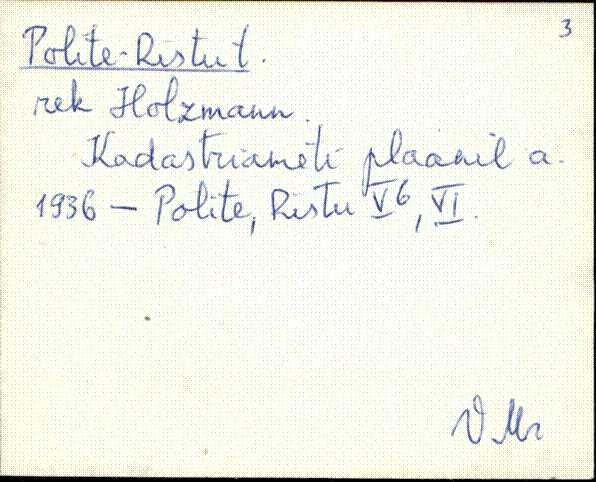 3
Polite-Ristu t.
rek Holzmann.
Kadastriameti plaanil a.
1936 — Polite, Ristu V⁶, VI.
V Mr